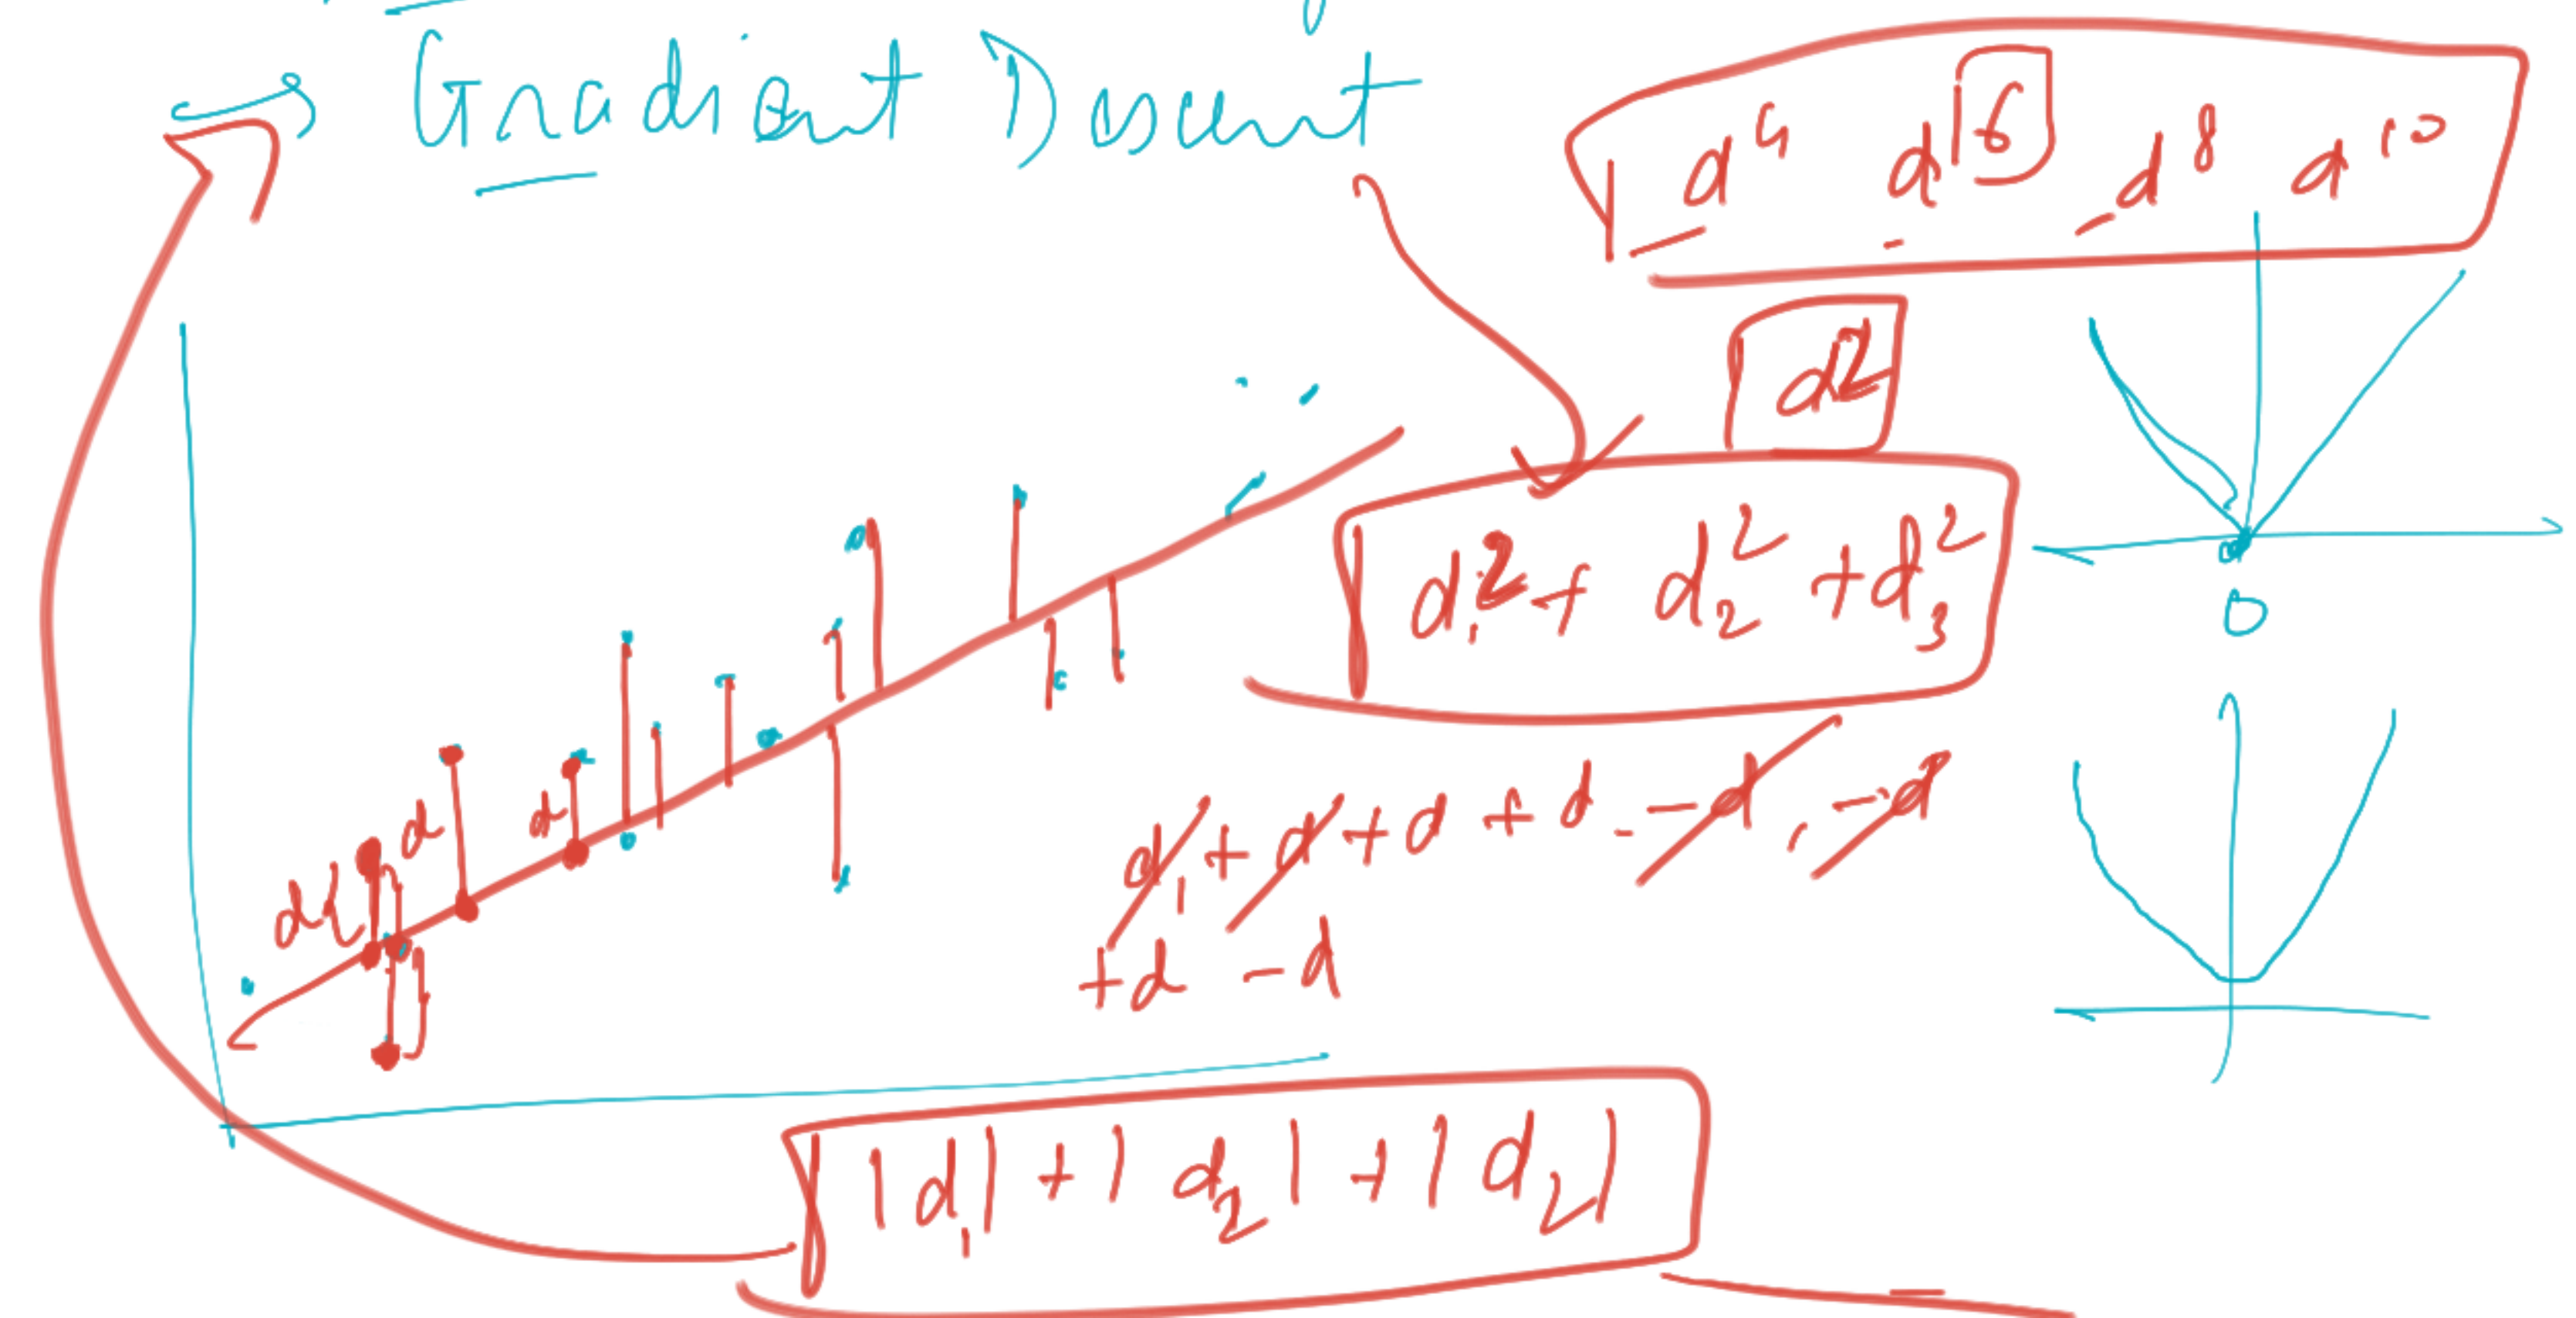 Gradient Descent
d⁴ d⁶ d⁸ d¹⁰
d²
d₁² + d₂² + d₃²
0
d d d
d₁ + d + d + d - -d, -d
+d -d
|d₁| + |d₂| + |d₂|